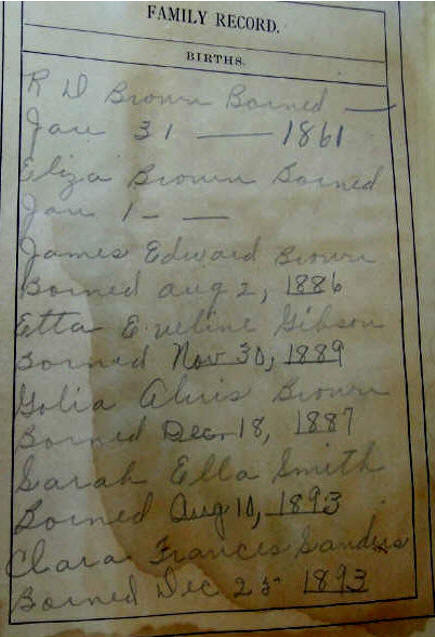 FAMILY RECORD.
BIRTHS.
R D Brown Borned —
Jan 31 — 1861
Eliza Brown Borned
Jan 1 — —
James Edward Brown
Borned aug 2, 1886
Etta Eveline Gibson
Borned Nov 30, 1889
Golia Brown
Borned Dec. 18, 1887
Sarah Ella Smith
Borned Aug 10, 1893
Clara Frances Sanders
Borned Dec 25 1893